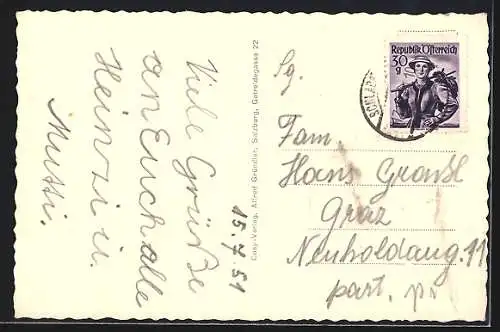 Viele Grüße
an Euch alle
Heinzi u.
Mutti.
15.7.51
Cosy-Verlag, Alfred Gründler, Salzburg, Getreidegasse 22
Republik Österreich
30
g
Sg.
Fam.
Hans
Graz
Neuholdaug. 11
part.